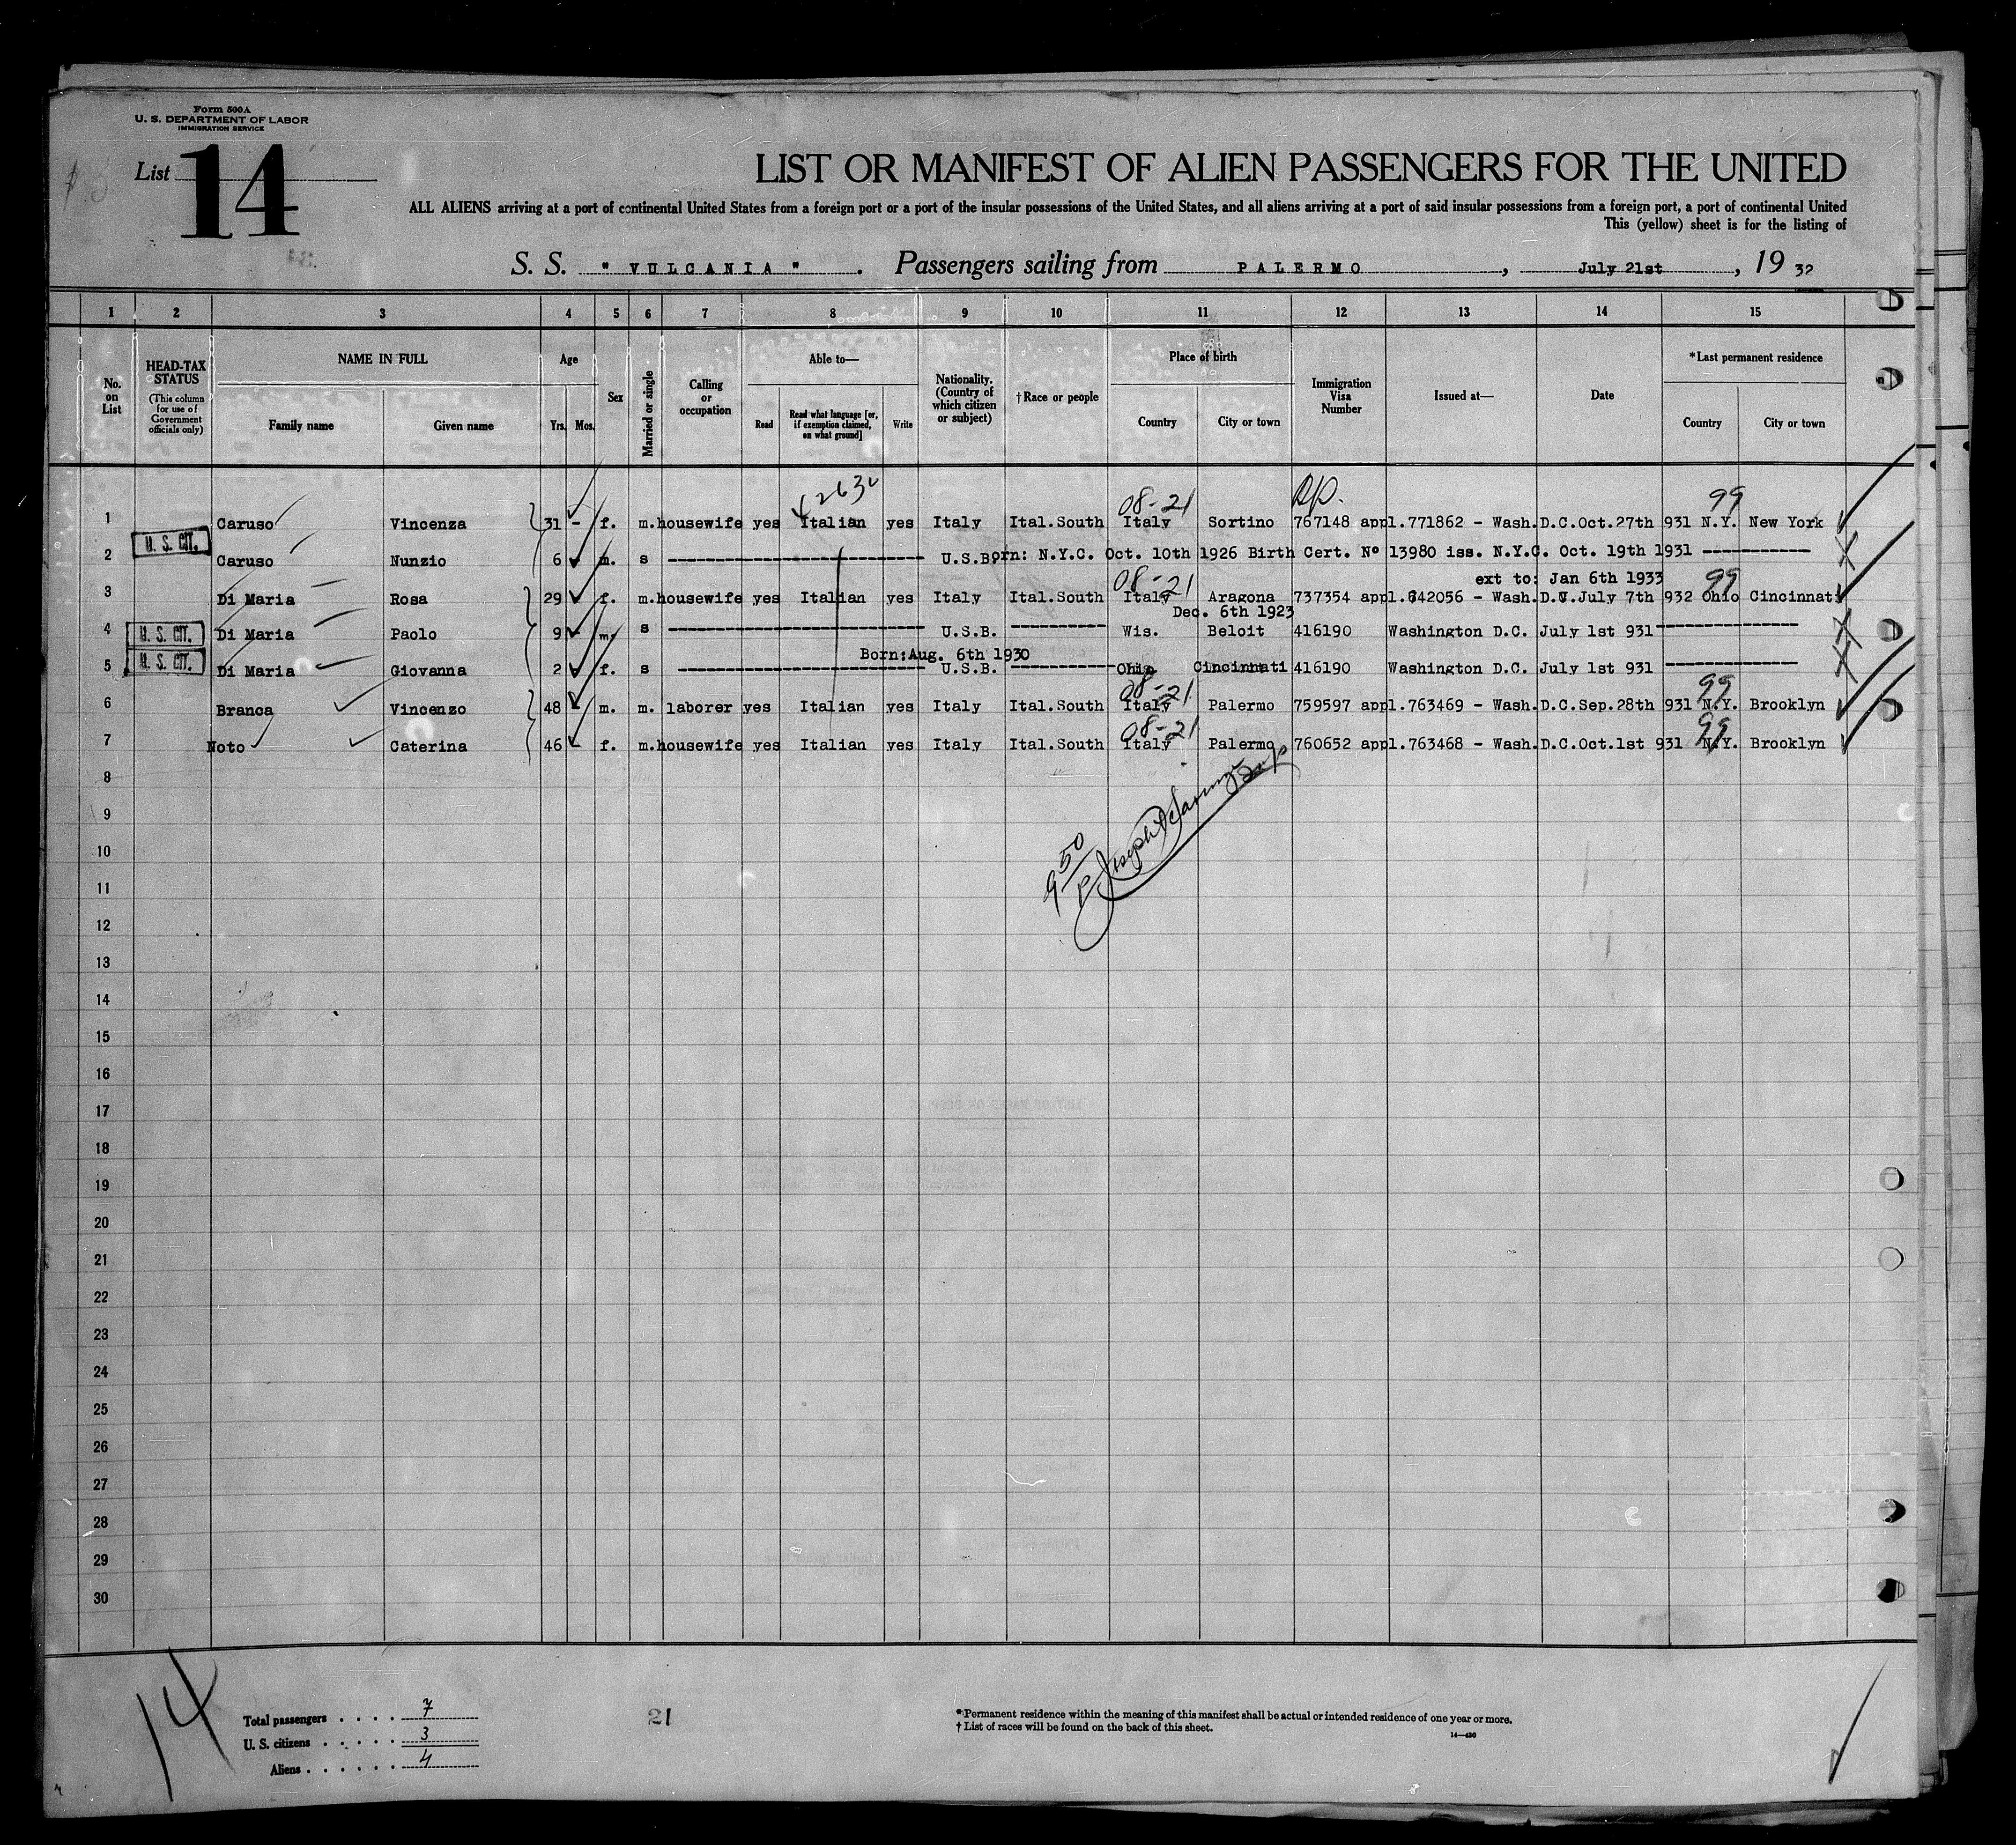 Form 500A
U. S. DEPARTMENT OF LABOR
IMMIGRATION SERVICE
List 14
LIST OR MANIFEST OF ALIEN PASSENGERS FOR THE UNITED
ALL ALIENS arriving at a port of continental United States from a foreign port or a port of the insular possessions of the United States, and all aliens arriving at a port of said insular possessions from a foreign port, a port of continental United
This (yellow) sheet is for the listing of
S. S. "VULCANIA". Passengers sailing from PALERMO, July 21st, 19 32
1 2 3 4 5 6 7 8 9 10 11 12 13 14 15
No. on List
HEAD-TAX STATUS (This column for use of Government officials only)
NAME IN FULL
Family name Given name
Age
Yrs. Mos.
Sex
Married or single
Calling or occupation
Able to—
Read Read what language [or, if exemption claimed, on what ground] Write
Nationality. (Country of which citizen or subject)
†Race or people
Place of birth
Country City or town
Immigration Visa Number
Issued at—
Date
*Last permanent residence
Country City or town
08-21 99
1 Caruso Vincenza 31 - f. m. housewife yes Italian yes Italy Ital.South Italy Sortino 767148 appl.771862 - Wash.D.C.Oct.27th 931 N.Y. New York
U. S. CIT.
2 Caruso Nunzio 6 m. s U.S.Born: N.Y.C. Oct. 10th 1926 Birth Cert. Nº 13980 iss. N.Y.C. Oct. 19th 1931
ext to: Jan 6th 1933
08-21 99
3 Di Maria Rosa 29 f. m. housewife yes Italian yes Italy Ital.South Italy Aragona 737354 appl.642056 - Wash.D.C.July 7th 932 Ohio Cincinnati
Dec. 6th 1923
4 U. S. CIT. Di Maria Paolo 9 m. s U.S.B. Wis. Beloit 416190 Washington D.C. July 1st 931
Born:Aug. 6th 1930
5 U. S. CIT. Di Maria Giovanna 2 f. s U.S.B. Ohio Cincinnati 416190 Washington D.C. July 1st 931
08-21 99
6 Branca Vincenzo 48 m. m. laborer yes Italian yes Italy Ital.South Italy Palermo 759597 appl.763469 - Wash.D.C.Sep.28th 931 N.Y. Brooklyn
08-21 99
7 Noto Caterina 46 f. m. housewife yes Italian yes Italy Ital.South Italy Palermo 760652 appl.763468 - Wash.D.C.Oct.1st 931 N.Y. Brooklyn
8
9
10
11
12
13
14
15
16
17
18
19
20
21
22
23
24
25
26
27
28
29
30
14
Total passengers . . . . 7
U. S. citizens . . . . . 3
Aliens . . . . . . 4
21
*Permanent residence within the meaning of this manifest shall be actual or intended residence of one year or more.
†List of races will be found on the back of this sheet.
14—430